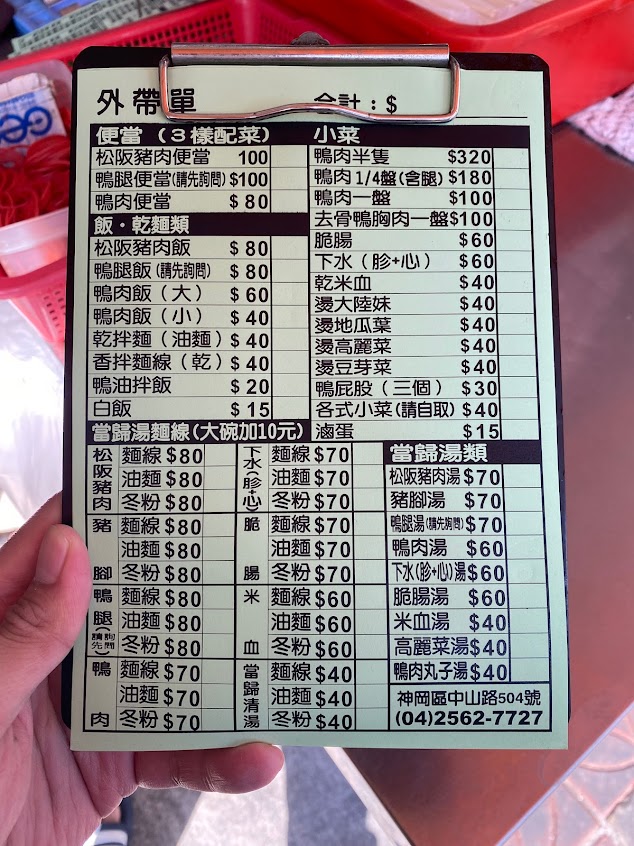 外帶單 合計：$
便當（3樣配菜）
松阪豬肉便當 100
鴨腿便當(請先詢問) $100
鴨肉便當 $80
飯・乾麵類
松阪豬肉飯 $80
鴨腿飯(請先詢問) $80
鴨肉飯（大） $60
鴨肉飯（小） $40
乾拌麵（油麵） $40
香拌麵線（乾） $40
鴨油拌飯 $20
白飯 $15
小菜
鴨肉半隻 $320
鴨肉1/4盤(含腿) $180
鴨肉一盤 $100
去骨鴨胸肉一盤 $100
脆腸 $60
下水（胗+心） $60
乾米血 $40
燙大陸妹 $40
燙地瓜葉 $40
燙高麗菜 $40
燙豆芽菜 $40
鴨屁股（三個） $30
各式小菜(請自取) $40
滷蛋 $15
當歸湯麵線(大碗加10元)
松阪豬肉
麵線 $80
油麵 $80
冬粉 $80
豬腳
麵線 $80
油麵 $80
冬粉 $80
鴨腿(請先詢問)
麵線 $80
油麵 $80
冬粉 $80
鴨肉
麵線 $70
油麵 $70
冬粉 $70
下水(胗+心)
麵線 $70
油麵 $70
冬粉 $70
脆腸
麵線 $70
油麵 $70
冬粉 $70
米血
麵線 $60
油麵 $60
冬粉 $60
當歸清湯
麵線 $40
油麵 $40
冬粉 $40
當歸湯類
松阪豬肉湯 $70
豬腳湯 $70
鴨腿湯(請先詢問) $70
鴨肉湯 $60
下水(胗+心)湯 $60
脆腸湯 $60
米血湯 $40
高麗菜湯 $40
鴨肉丸子湯 $40
神岡區中山路504號
(04)2562-7727